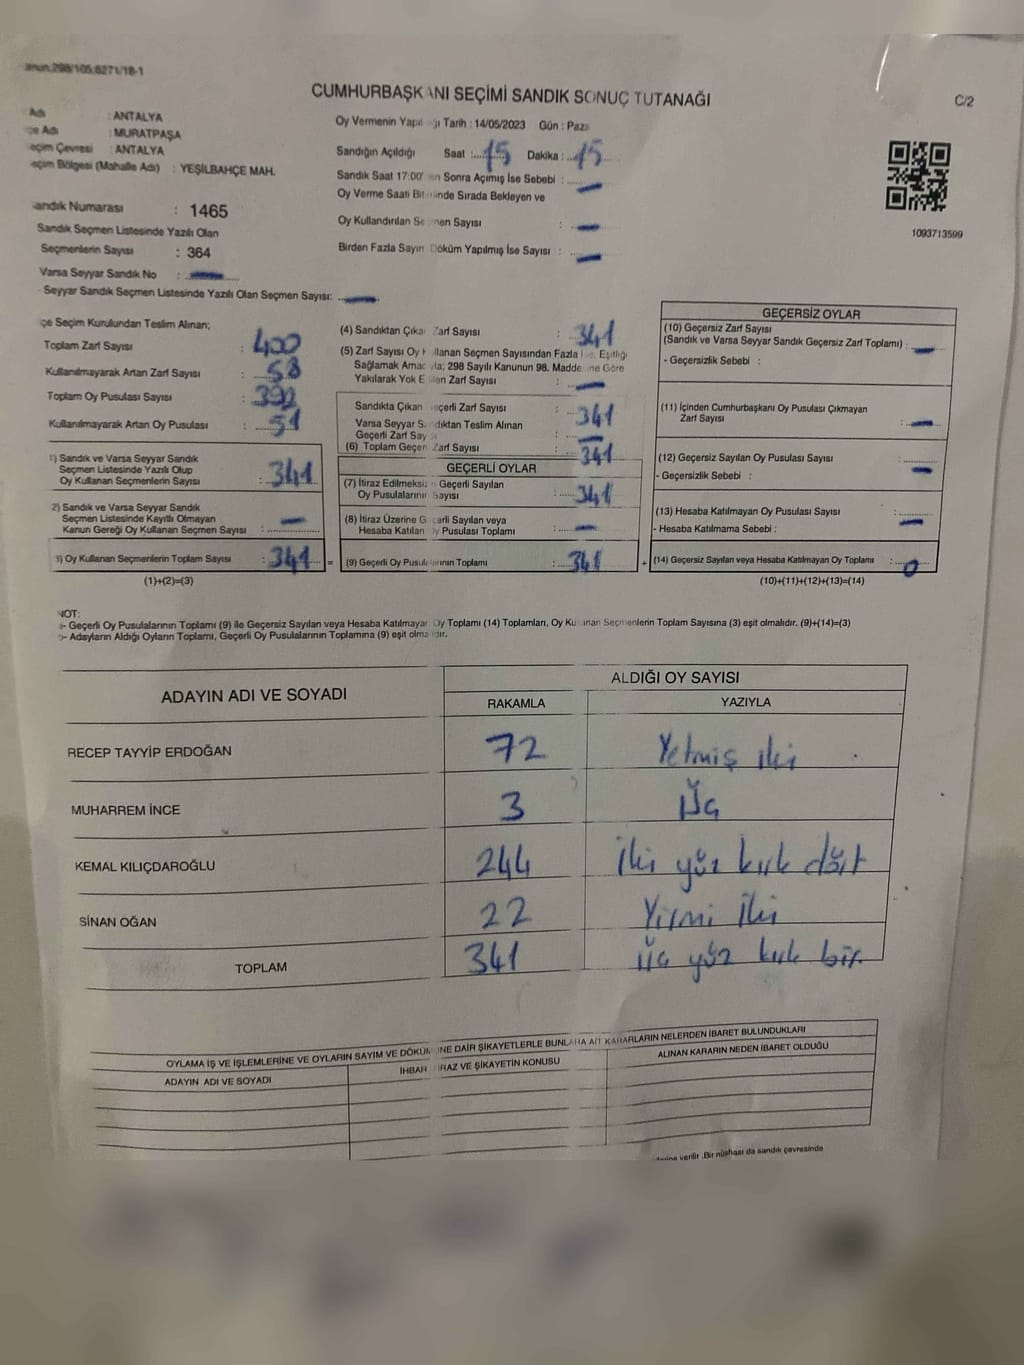 298/105;6271/18-1
CUMHURBAŞKANI SEÇİMİ SANDIK SONUÇ TUTANAĞI
C/2
Adı : ANTALYA
Adı : MURATPAŞA
Seçim Çevresi : ANTALYA
Seçim Bölgesi (Mahalle Adı) : YEŞİLBAHÇE MAH.
Sandık Numarası : 1465
Sandık Seçmen Listesinde Yazılı Olan
Seçmenlerin Sayısı : 364
Varsa Seyyar Sandık No : —
Seyyar Sandık Seçmen Listesinde Yazılı Olan Seçmen Sayısı: —
Oy Vermenin Tarih : 14/05/2023 Gün :
Sandığın Açıldığı Saat :15 Dakika :15
Sandık Saat 17:00' Sonra Açımış İse Sebebi : —
Oy Verme Saati Sırada Bekleyen ve
Oy Kullandırılan Seçmen Sayısı : —
Birden Fazla Sayım Döküm Yapılmış İse Sayısı : —
1093713599
Seçim Kurulundan Teslim Alınan;
Toplam Zarf Sayısı : 400
Kullanılmayarak Artan Zarf Sayısı : 58
Toplam Oy Pusulası Sayısı : 392
Kullanılmayarak Artan Oy Pusulası : 51
1) Sandık ve Varsa Seyyar Sandık
Seçmen Listesinde Yazılı Olup
Oy Kullanan Seçmenlerin Sayısı : 341
2) Sandık ve Varsa Seyyar Sandık
Seçmen Listesinde Kayıtlı Olmayan
Kanun Gereği Oy Kullanan Seçmen Sayısı : —
3) Oy Kullanan Seçmenlerin Toplam Sayısı : 341 =
(1)+(2)=(3)
(4) Sandıktan Çıkan Zarf Sayısı : 341
(5) Zarf Sayısı Oy Kullanan Seçmen Sayısından Fazla İse, Eşitliği
Sağlamak Amacıyla; 298 Sayılı Kanunun 98. Maddesine Göre
Yakılarak Yok Edilen Zarf Sayısı : —
Sandıkta Çıkan Geçerli Zarf Sayısı : 341
Varsa Seyyar Sandıktan Teslim Alınan
Geçerli Zarf Sayısı : —
(6) Toplam Geçerli Zarf Sayısı : 341
GEÇERLİ OYLAR
(7) İtiraz Edilmeksizin Geçerli Sayılan
Oy Pusulalarının Sayısı : 341
(8) İtiraz Üzerine Geçerli Sayılan veya
Hesaba Katılan Oy Pusulası Toplamı : —
(9) Geçerli Oy Pusulalarının Toplamı : 341 +
GEÇERSİZ OYLAR
(10) Geçersiz Zarf Sayısı
(Sandık ve Varsa Seyyar Sandık Geçersiz Zarf Toplamı) : —
- Geçersizlik Sebebi :
(11) İçinden Cumhurbaşkanı Oy Pusulası Çıkmayan
Zarf Sayısı : —
(12) Geçersiz Sayılan Oy Pusulası Sayısı : —
- Geçersizlik Sebebi :
(13) Hesaba Katılmayan Oy Pusulası Sayısı : —
- Hesaba Katılmama Sebebi :
(14) Geçersiz Sayılan veya Hesaba Katılmayan Oy Toplamı : 0
(10)+(11)+(12)+(13)=(14)
NOT:
a- Geçerli Oy Pusulalarının Toplamı (9) ile Geçersiz Sayılan veya Hesaba Katılmayan Oy Toplamı (14) Toplamları, Oy Kullanan Seçmenlerin Toplam Sayısına (3) eşit olmalıdır. (9)+(14)=(3)
b- Adayların Aldığı Oyların Toplamı, Geçerli Oy Pusulalarının Toplamına (9) eşit olmalıdır.
ADAYIN ADI VE SOYADI
ALDIĞI OY SAYISI
RAKAMLA YAZIYLA
RECEP TAYYİP ERDOĞAN 72 Yetmiş iki
MUHARREM İNCE 3 Üç
KEMAL KILIÇDAROĞLU 244 iki yüz kırk dört
SİNAN OĞAN 22 Yirmi İki
TOPLAM 341 Üç yüz kırk bir.
OYLAMA İŞ VE İŞLEMLERİNE VE OYLARIN SAYIM VE DÖKÜMÜNE DAİR ŞİKAYETLERLE BUNLARA AİT KARARLARIN NELERDEN İBARET BULUNDUKLARI
ADAYIN ADI VE SOYADI İHBAR İTİRAZ VE ŞİKAYETİN KONUSU ALINAN KARARIN NEDEN İBARET OLDUĞU
verilir .Bir nüshası da sandık çevresinde